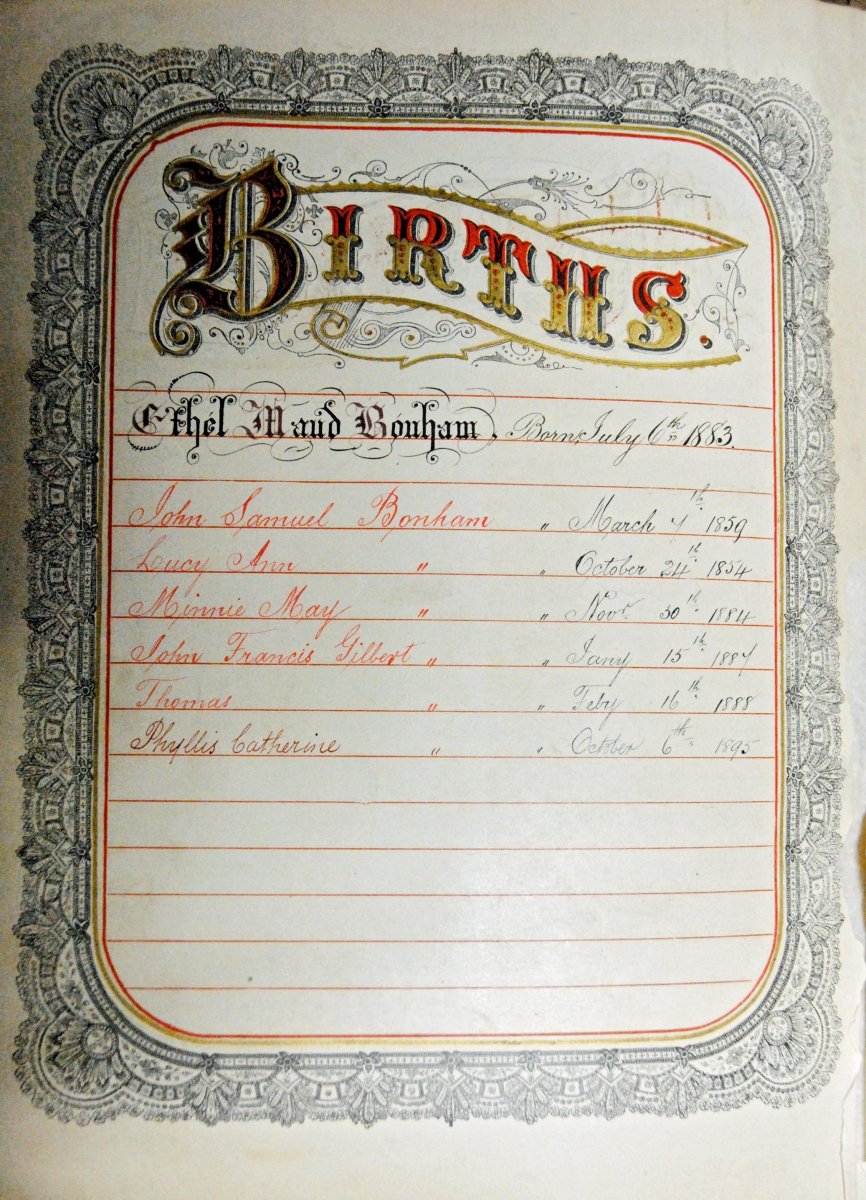 BIRTHS.
Ethel Maud Bonham, Born July 6th 1883.
John Samuel Bonham " March 7th 1859
Lucy Ann " " October 24th 1854
Minnie May " " Novr. 30th 1884
John Francis Gilbert " " Jany 15th 1887
Thomas " " Feby 16th 1888
Phyllis Catherine " " October 6th 1895